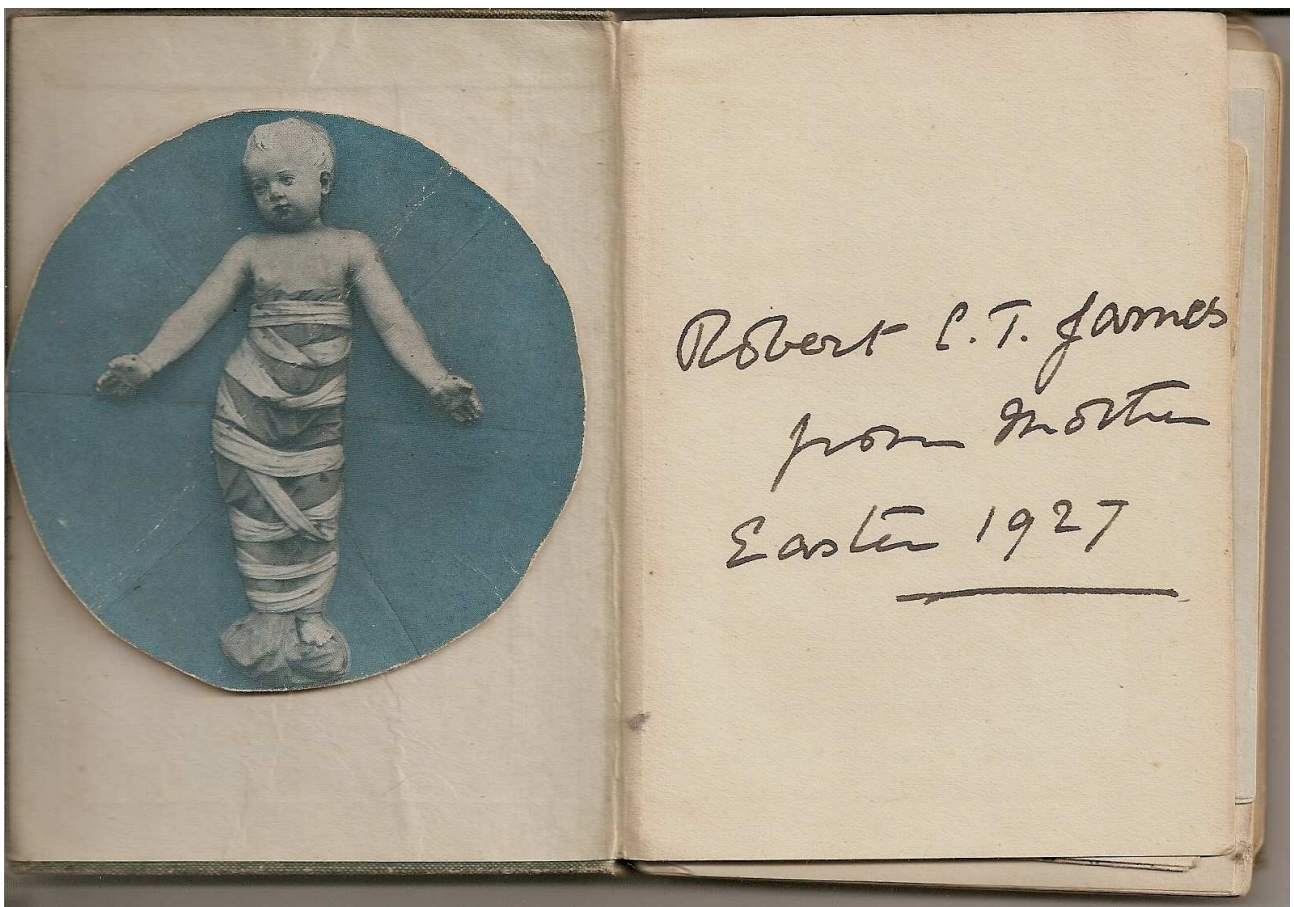 Robert C.T. James
from Mother
Easter 1927